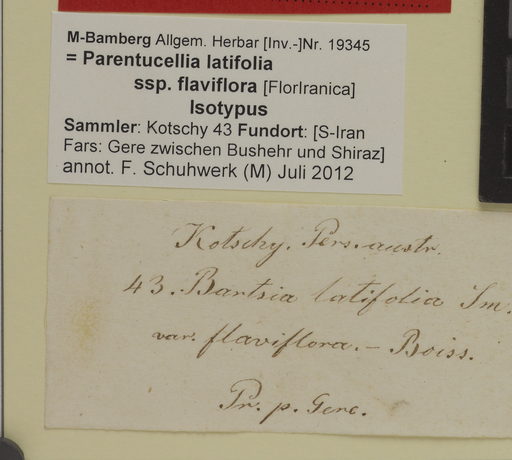 M-Bamberg Allgem. Herbar [Inv.-]Nr. 19345
= Parentucellia latifolia
ssp. flaviflora [FlorIranica]
Isotypus
Sammler: Kotschy 43 Fundort: [S-Iran
Fars: Gere zwischen Bushehr und Shiraz]
annot. F. Schuhwerk (M) Juli 2012
Kotschy. Pers. austr.
43. Bartsia latifolia Sm.
var. flaviflora. – Boiss.
Pr. p. Gere.